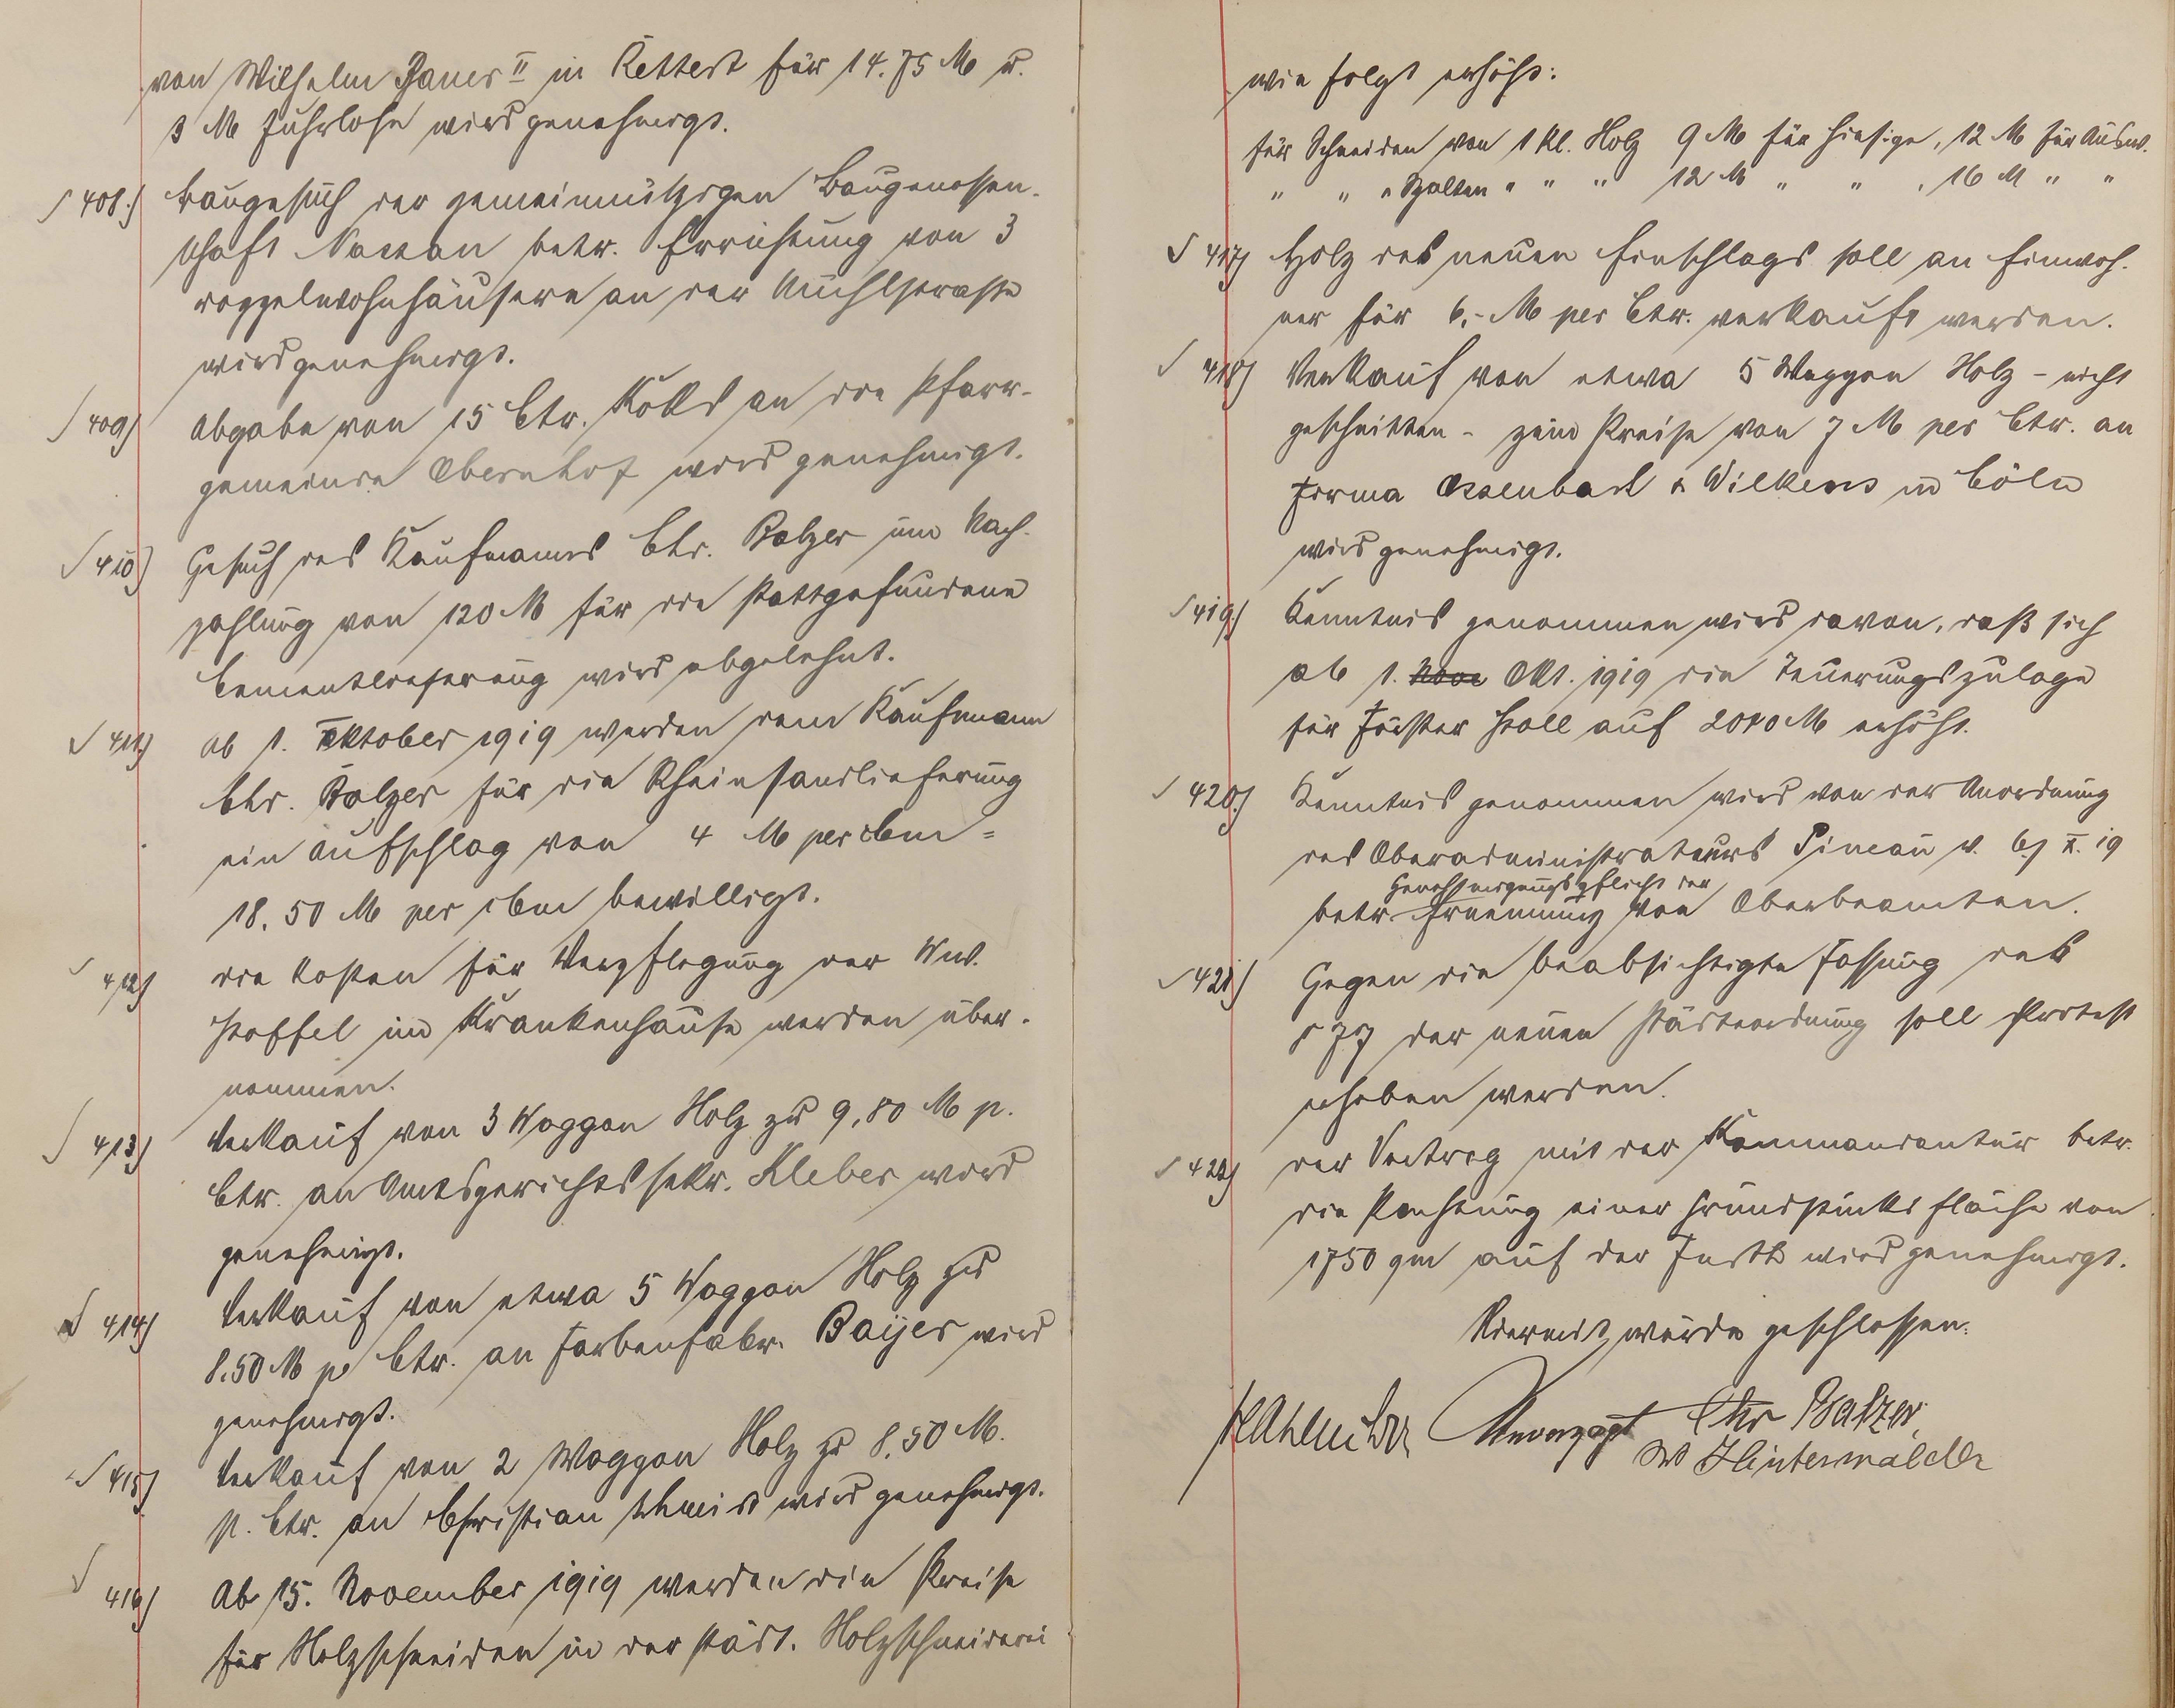 von Wilhelm Bauer II in Kettert für 14.75 M u.
3 M Fuhrlohn wird genehmigt.
408.) Baugesuch der gemeinnützigen Baugenossen-
schaft Nassau betr. Errichtung von 3
Doppelwohnhäusern an der Mühlstrasse
wird genehmigt.
409) Abgabe von 15 Ctr. Koks an die Pfarr-
gemeinde Obernhof wird genehmigt.
410) Gesuch des Kaufmanns Chr. Balzer um Nach-
zahlung von 120 M für die stattgefundene
Cementlieferung wird abgelehnt.
411) Ab 1. Oktober 1919 werden dem Kaufmann
Chr. Balzer für die Rheinsandlieferung
ein Aufschlag von 4 M per cbm =
18.50 M per cbm bewilligt.
412) Die Kosten für Verpflegung der Ww.
Stoffel im Krankenhause werden über-
nommen.
413) Verkauf von 3 Waggon Holz zu 9,80 M p.
Ctr. an Amtsgerichtssekr. Kleber wird
genehmigt.
414) Verkauf von etwa 5 Waggon Holz zu
8.50 M p Ctr. an Farbenfabr. Baijer wird
genehmigt.
415) Verkauf von 2 Waggon Holz zu 8.50 M.
p. Ctr. an Christian Schmidt wird genehmigt.
416) Ab 15. November 1919 werden die Preise
für Holzschneiden in der städt. Holzschneiderei
wie folgt erhöht:
für Schneiden von 1 Kl. Holz 9 M für hiesige, 12 M für Ausw.
" " " Spalten " " " 12 M " " , 16 M " "
417) Holz des neuen Einschlags soll an Einwoh-
ner für 6,- M per Ctr. verkauft werden.
418) Verkauf von etwa 5 Waggon Holz - nicht
geschnitten - zum Preise von 7 M per Ctr. an
Firma Ossenbach & Wilkens in Cöln
wird genehmigt.
419.) Kenntnis genommen wird davon, daß sich
ab 1. Nove Okt. 1919 die Teuerungszulage
für Förster Stoll auf 2040 M erhöht.
420.) Kenntnis genommen wird von der Anordnung
des Oberadministrateurs Pineau v. 6) X. 19
Genehmigungspflicht der
betr. Ernennung von Oberbeamten.
421) Gegen die beabsichtigte Fassung des
§ 77 der neuen Städteordnung soll Protest
erhoben werden.
422) Der Vertrag mit der Kommandantur betr.
die Pachtung einer Grundstücksfläche von
1750 qm auf der wird genehmigt.
Hiermit wurde geschlossen.
Unverzagt Chr Balzer
W Hinterwälder